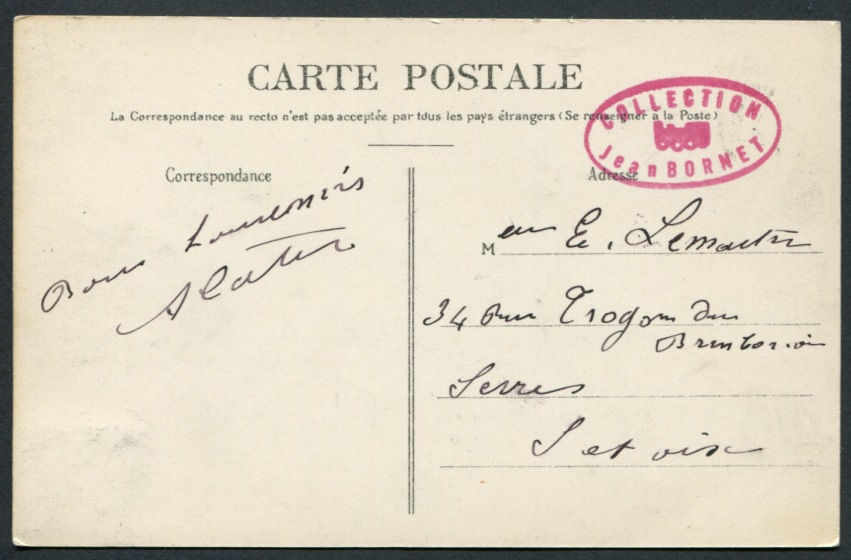 CARTE POSTALE
La Correspondance au recto n'est pas acceptée par tous les pays étrangers (Se renseigner a la Poste)
COLLECTION
Jean BORNET
Correspondance
Bons
Adresse
M eur E. Lemaitre
34 Rue
Brimborion
Sevres
S et oise